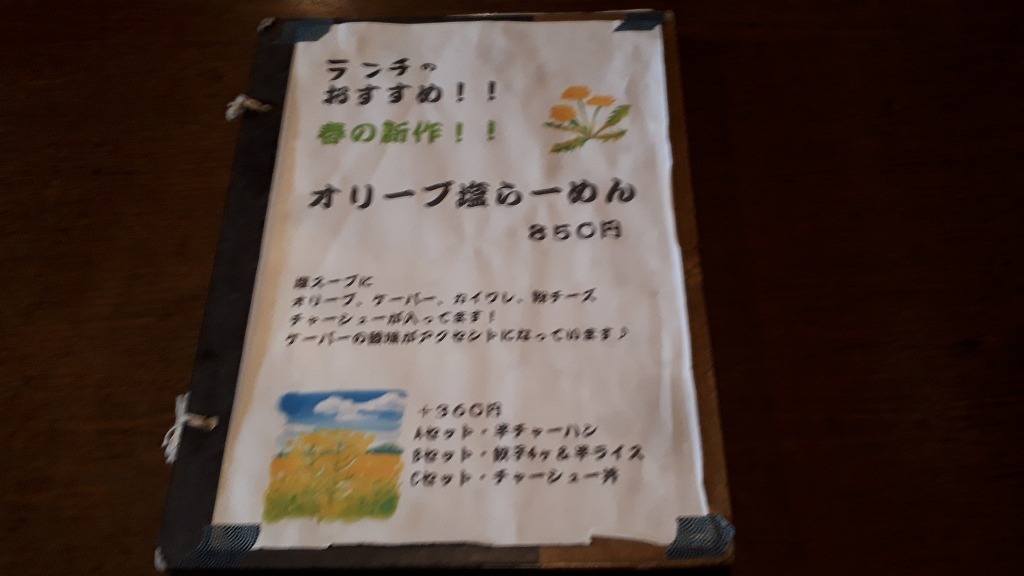 ランチの
おすすめ！！
春の新作！！
オリーブ塩らーめん
850円
塩スープに
オリーブ、ケーパー、カイワレ、粉チーズ
チャーシューが入ってます！
ケーパーの酸味がアクセントになっています♪
+360円
Aセット・半チャーハン
Bセット・餃子4ヶ&半ライス
Cセット・チャーシュー丼